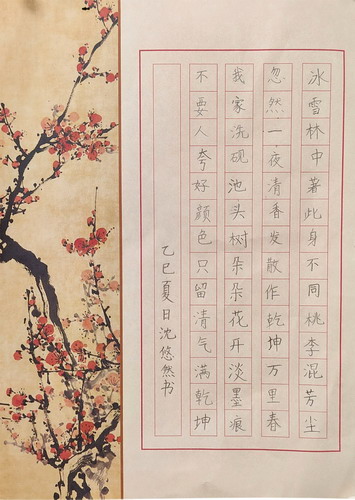 冰雪林中著此身不同桃李混芳尘
忽然一夜清香发散作乾坤万里春
我家洗砚池头树朵朵花开淡墨痕
不要人夸好颜色只留清气满乾坤
乙巳夏日沈悠然书